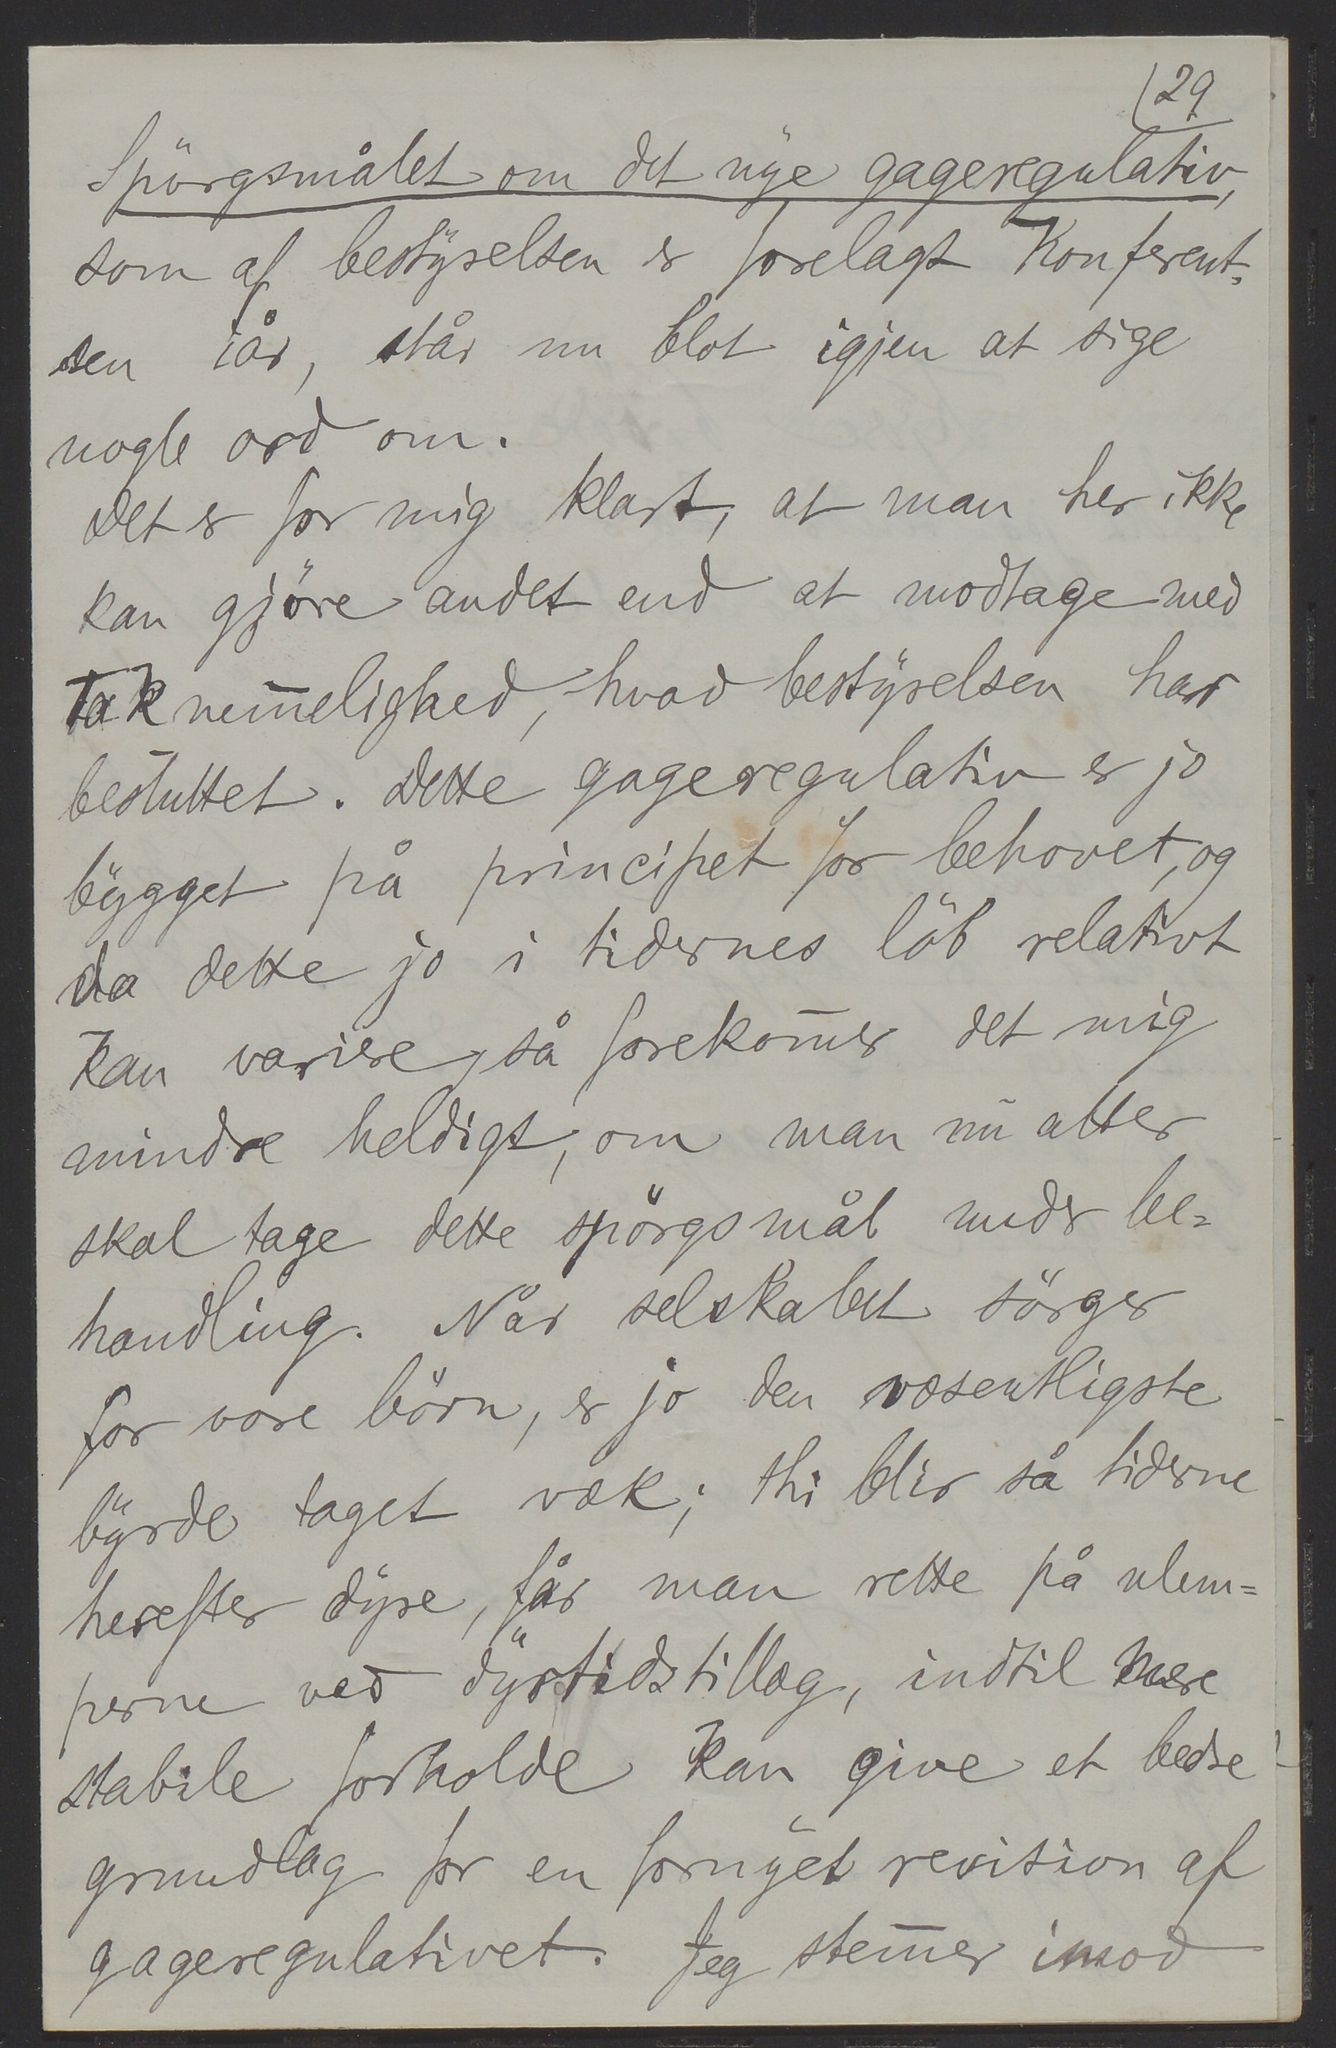 29
Spörgsmålet om det nye gageregulativ,
som af bestÿrelsen er forelagt Konferent-
sen iår, står nu blot igjen at sige
nogle ord om.
Det er for mig klart, at man her ikke
kan gjöre andet end at modtage med
Taknem̅elighed, hvad bestÿrelsen har
besluttet. Dette gageregulativ er jo
bÿgget på principet for behovet, og
da dette jo i tidernes löb relativt
kan variere, så forekom̅er det mig
mindre heldigt, om man nu atter
skal tage dette spörgsmål under be=
handling. Når selskabet sörger
for vore börn, er jo den væsentligste
bÿrde taget væk; thi blir så tiderne
herefter dÿre, får man rette på ulem=
perne ved dÿrtidstillæg, indtil mere
stabile forholde kan give et bedre
grundlag for en fornÿet revision af
gageregulativet. Jeg stem̅er imod